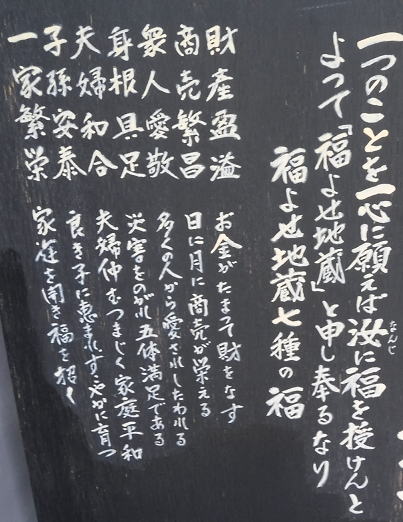 一つのことを一心に願えば汝に福を授けんと
なんじ
よって「福よせ地蔵」と申し奉るなり
福よせ地蔵七種の福
財産盈溢 お金がたまて財をなす
商売繁昌 日に月に商売が栄える
衆人愛敬 多くの人から愛されしたわれる
身根具足 災害をのがれ五体満足である
夫婦和合 夫婦仲むつまじく家庭平和
子孫安泰 良き子に恵まれすこやかに育つ
一家繁栄 家運を開き福を招く